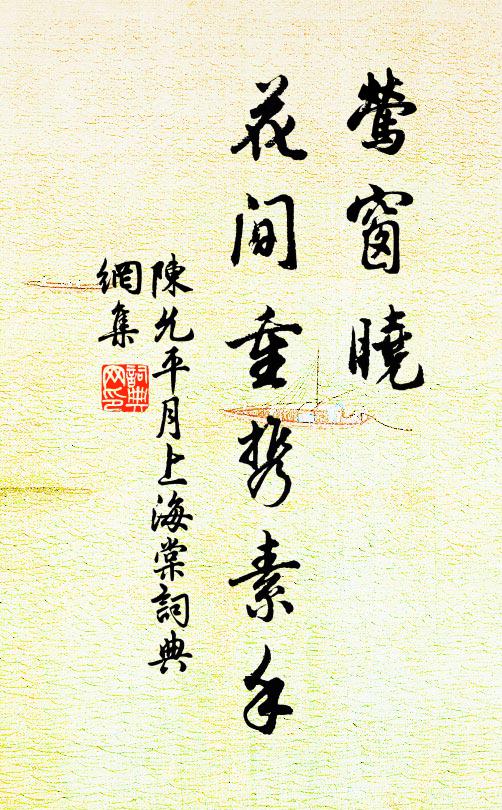 鶯窗曉
花間重携素手
陳允平月上海棠詞典
網集
詞典
网印